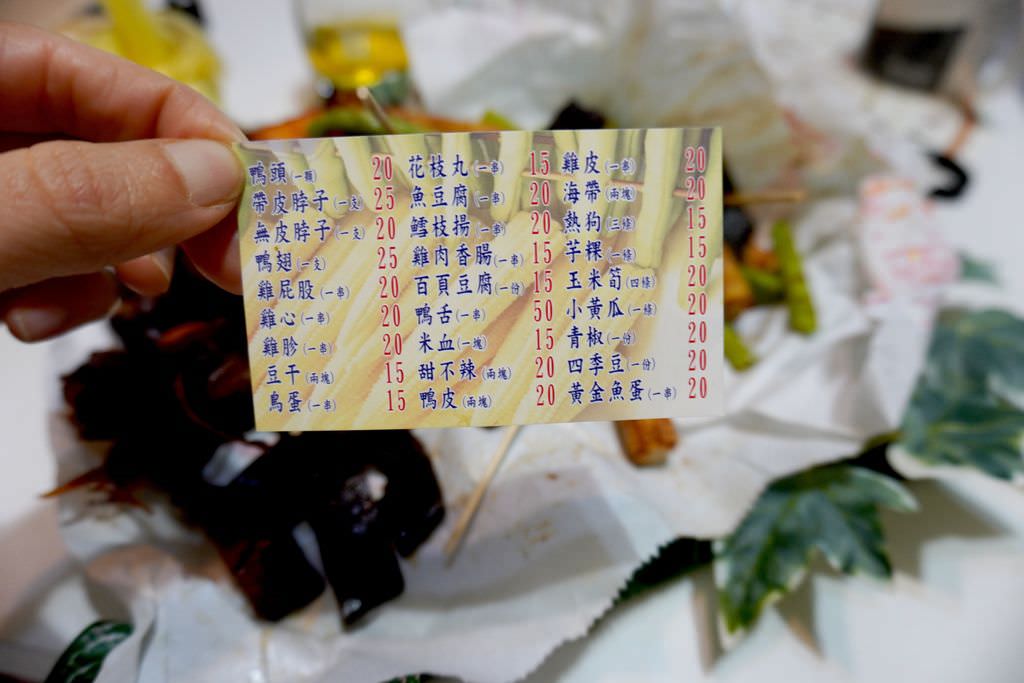 鴨頭(一顆) 20
帶皮脖子(一支) 25
無皮脖子(一支) 20
鴨翅(一支) 25
雞屁股(一串) 20
雞心(一串) 20
雞胗(一串) 20
豆干(兩塊) 15
鳥蛋(一串) 15
花枝丸(一串) 15
魚豆腐(一串) 20
鱈枝揚(一串) 20
雞肉香腸(一串) 15
百頁豆腐(一份) 15
鴨舌(一串) 50
米血(一塊) 15
甜不辣(兩塊) 20
鴨皮(兩塊) 20
雞皮(一串) 20
海帶(兩塊) 20
熱狗(三條) 15
芋粿(一條) 15
玉米筍(四條) 20
小黃瓜(一條) 20
青椒(一份) 20
四季豆(一份) 20
黃金魚蛋(一串) 20